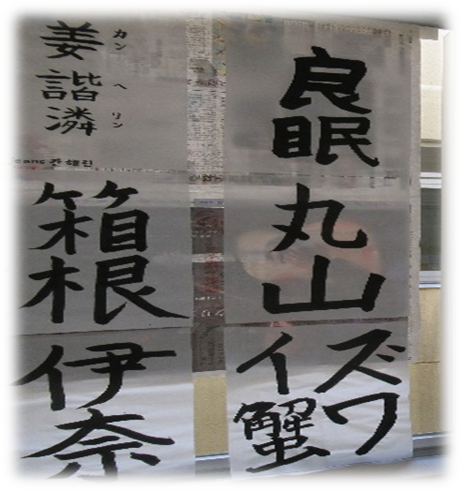 良眠
丸山
ズワ
イ蟹
カンヘリン
姜諧潾
箱根
伊奈